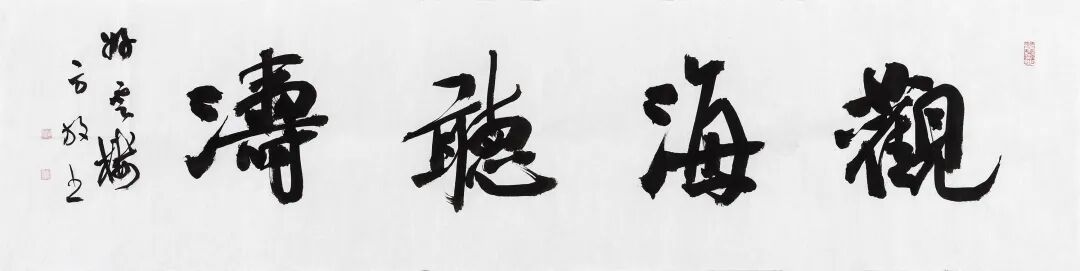 觀海聽濤
好雲樓
方放書